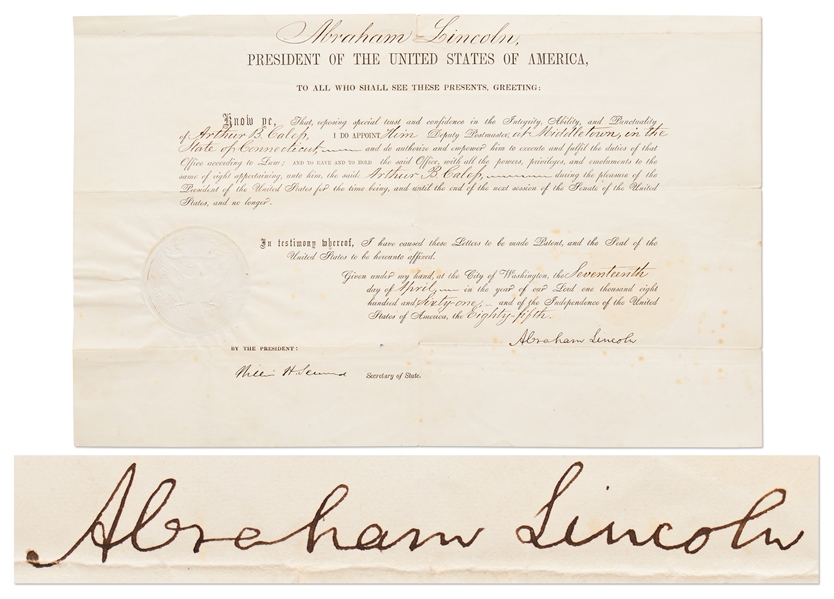 Abraham Lincoln,
PRESIDENT OF THE UNITED STATES OF AMERICA,
TO ALL WHO SHALL SEE THESE PRESENTS, GREETING:
Know ye, That, reposing special trust and confidence in the Integrity, Ability, and Punctuality
of Arthur B. Calef, I DO APPOINT Him Deputy Postmaster, at Middletown, in the
State of Connecticut and do authorize and empower him to execute and fulfil the duties of that
Office according to Law; AND TO HAVE AND TO HOLD the said Office, with all the powers, privileges, and emoluments to the
same of right appertaining, unto him, the said Arthur B. Calef, during the pleasure of the
President of the United States for the time being, and until the end of the next session of the Senate of the United
States, and no longer.
In testimony whereof, I have caused these Letters to be made Patent, and the Seal of the
United States to be hereunto affixed.
Given under my hand, at the City of Washington, the Seventeenth
day of April, in the year of our Lord one thousand eight
hundred and Sixty-one, and of the Independence of the United
States of America, the Eighty-fifth.
Abraham Lincoln
BY THE PRESIDENT:
William H. Seward Secretary of State.
Abraham Lincoln